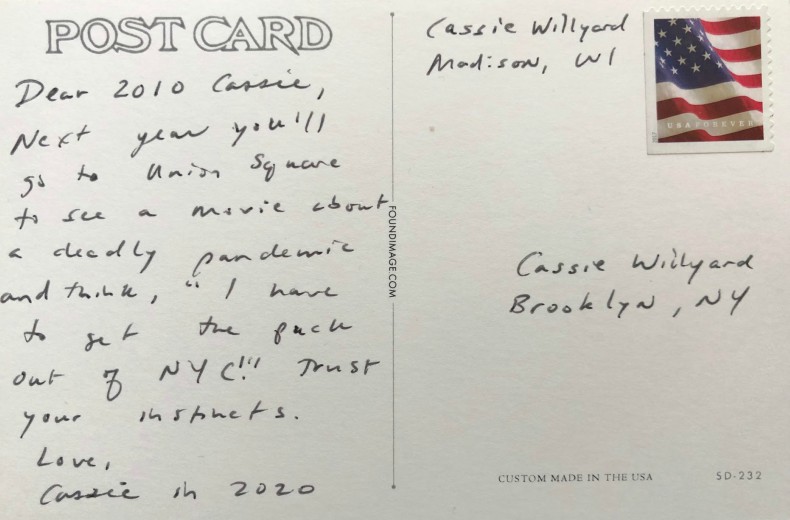 POST CARD
Dear 2010 Cassie,
Next year you'll
go to Union Square
to see a movie about
a deadly pandemic
and think, "I have
to get the fuck
out of NYC!!" Trust
your instincts.
Love,
Cassie in 2020
FOUNDIMAGE.COM
Cassie Willyard
Madison, WI
USA FOREVER
Cassie Willyard
Brooklyn, NY
CUSTOM MADE IN THE USA SD-232